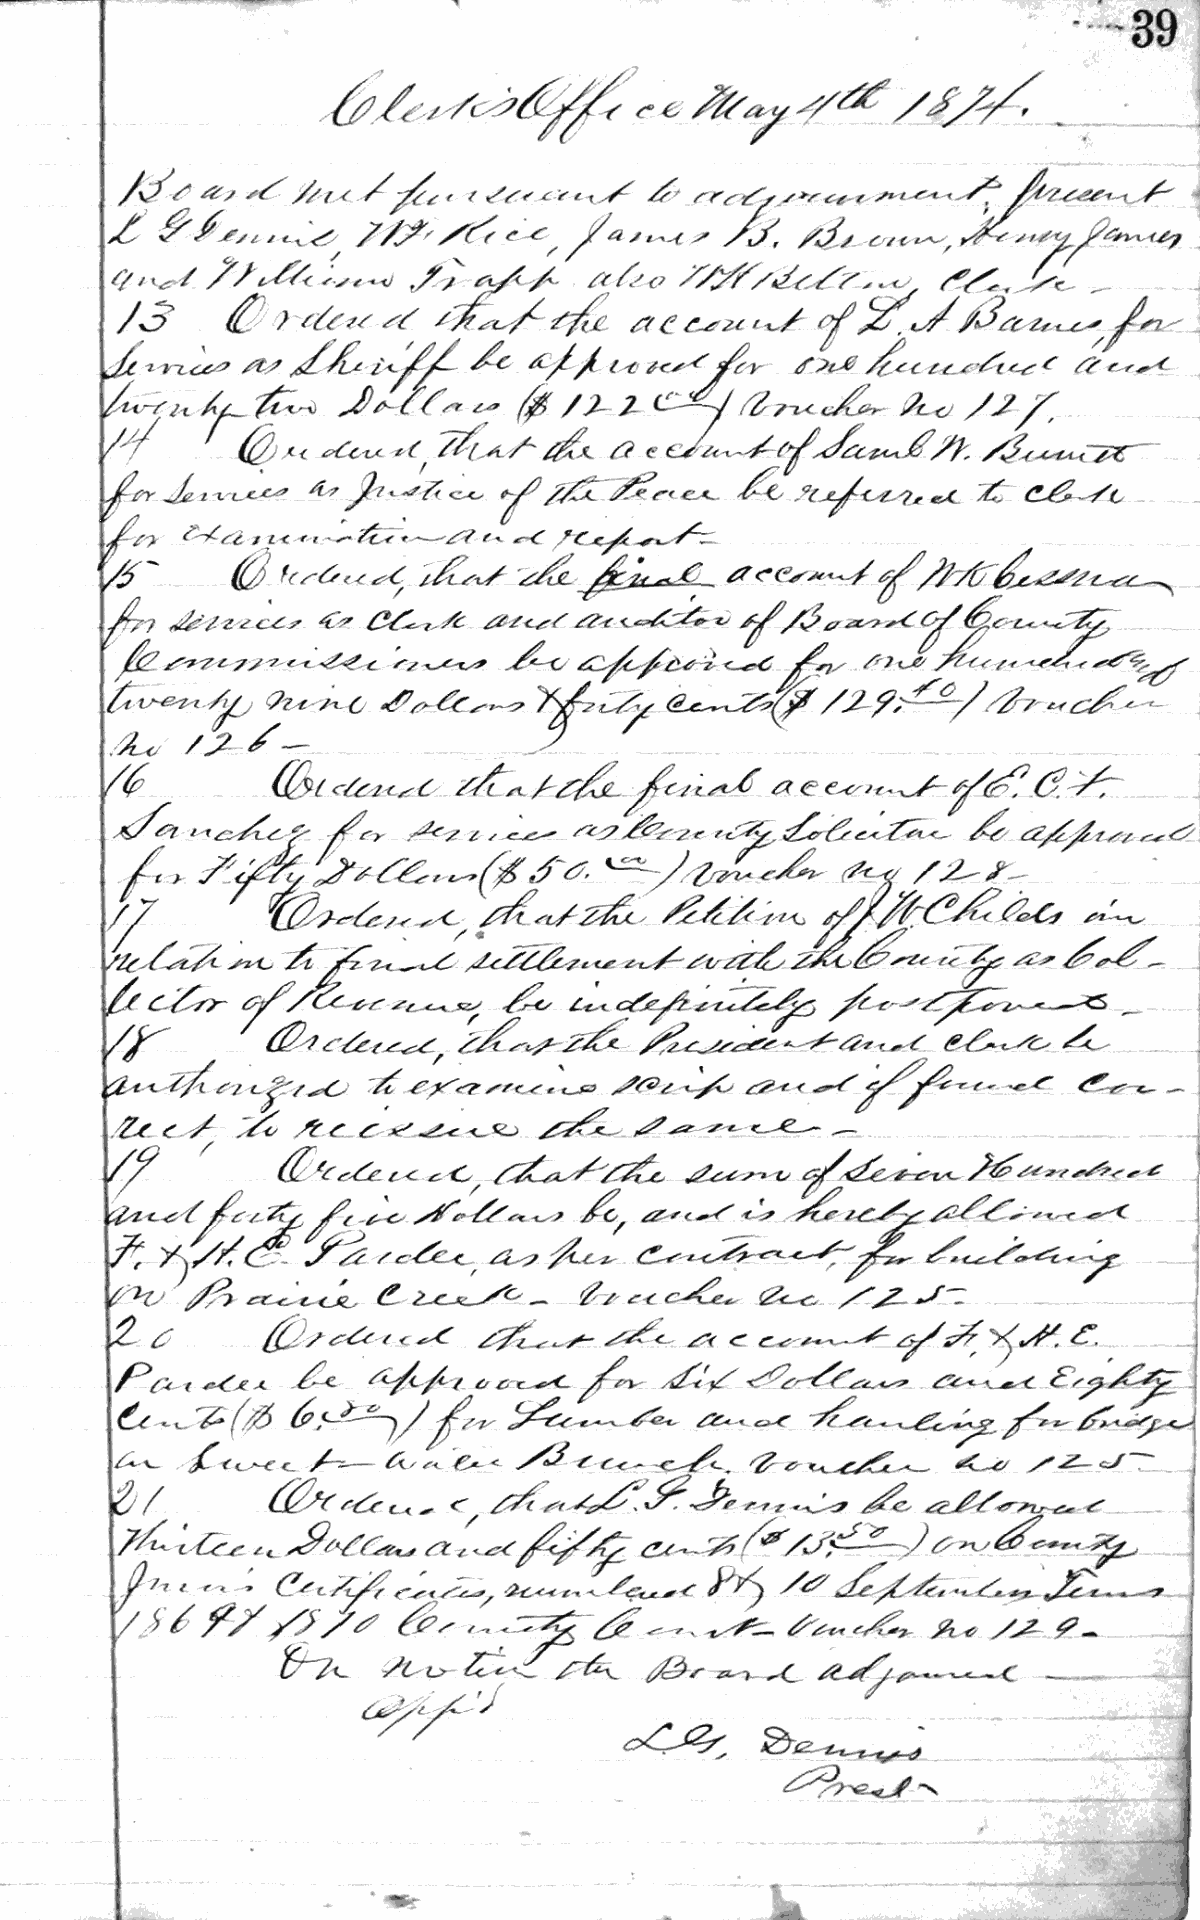 39
Clerk's Office May 4th 1874.
Board met pursuant to adjournment, present
L G Dennis, W.F. Rice, James B. Brown, Henry James
and William Trapp also W K Belton, Clerk -
13 Ordered that the account of L. A Barnes, for
Services as Sheriff be approved for one hundred and
twenty two Dollars ($122.00) Voucher No 127.
14 Ordered, that the account of Saml W. Burnett
for Services as Justice of the Peace be referred to clerk
for examination and report -
15 Ordered, that the final account of W K Cessna
for services as Clerk and auditor of Board of County
Commissioners be approved for one hundred and
twenty nine Dollars & forty cents ($129.40) Voucher
No 126 -
16 Ordered that the final account of E. C. F.
Sanchez for services as County Solicitor be approved
for Fifty Dollars ($50.00) Voucher No 128 -
17 Ordered, that the Petition of J W. Childs in
relation to final settlement with the County as Col-
lector of Revenue, be indefinitely postponed -
18 Ordered, that the President and clerk be
authorized to examine scrip and if found cor-
rect, to reissue the same -
19 Ordered, that the sum of Seven Hundred
and forty five Dollars be, and is hereby allowed
F. & H. E. Pardee, as per contract, for building
on Prairie Creek - Voucher No 125 -
20 Ordered that the account of F. & H. E.
Pardee be approved for Six Dollars and Eighty
Cents ($6.80) for Lumber and hauling for bridge
on Sweet-water Branch. Voucher No 125 -
21 Ordered, that L. G. Dennis be allowed
Thirteen Dollars and fifty cents ($13.50) on County
Juror's Certificates, numbered 8 & 10 September Terms
1869 & 1870 County Court - Voucher No 129 -
On motion the Board adjourned
App'd
L. G. Dennis
Prest -